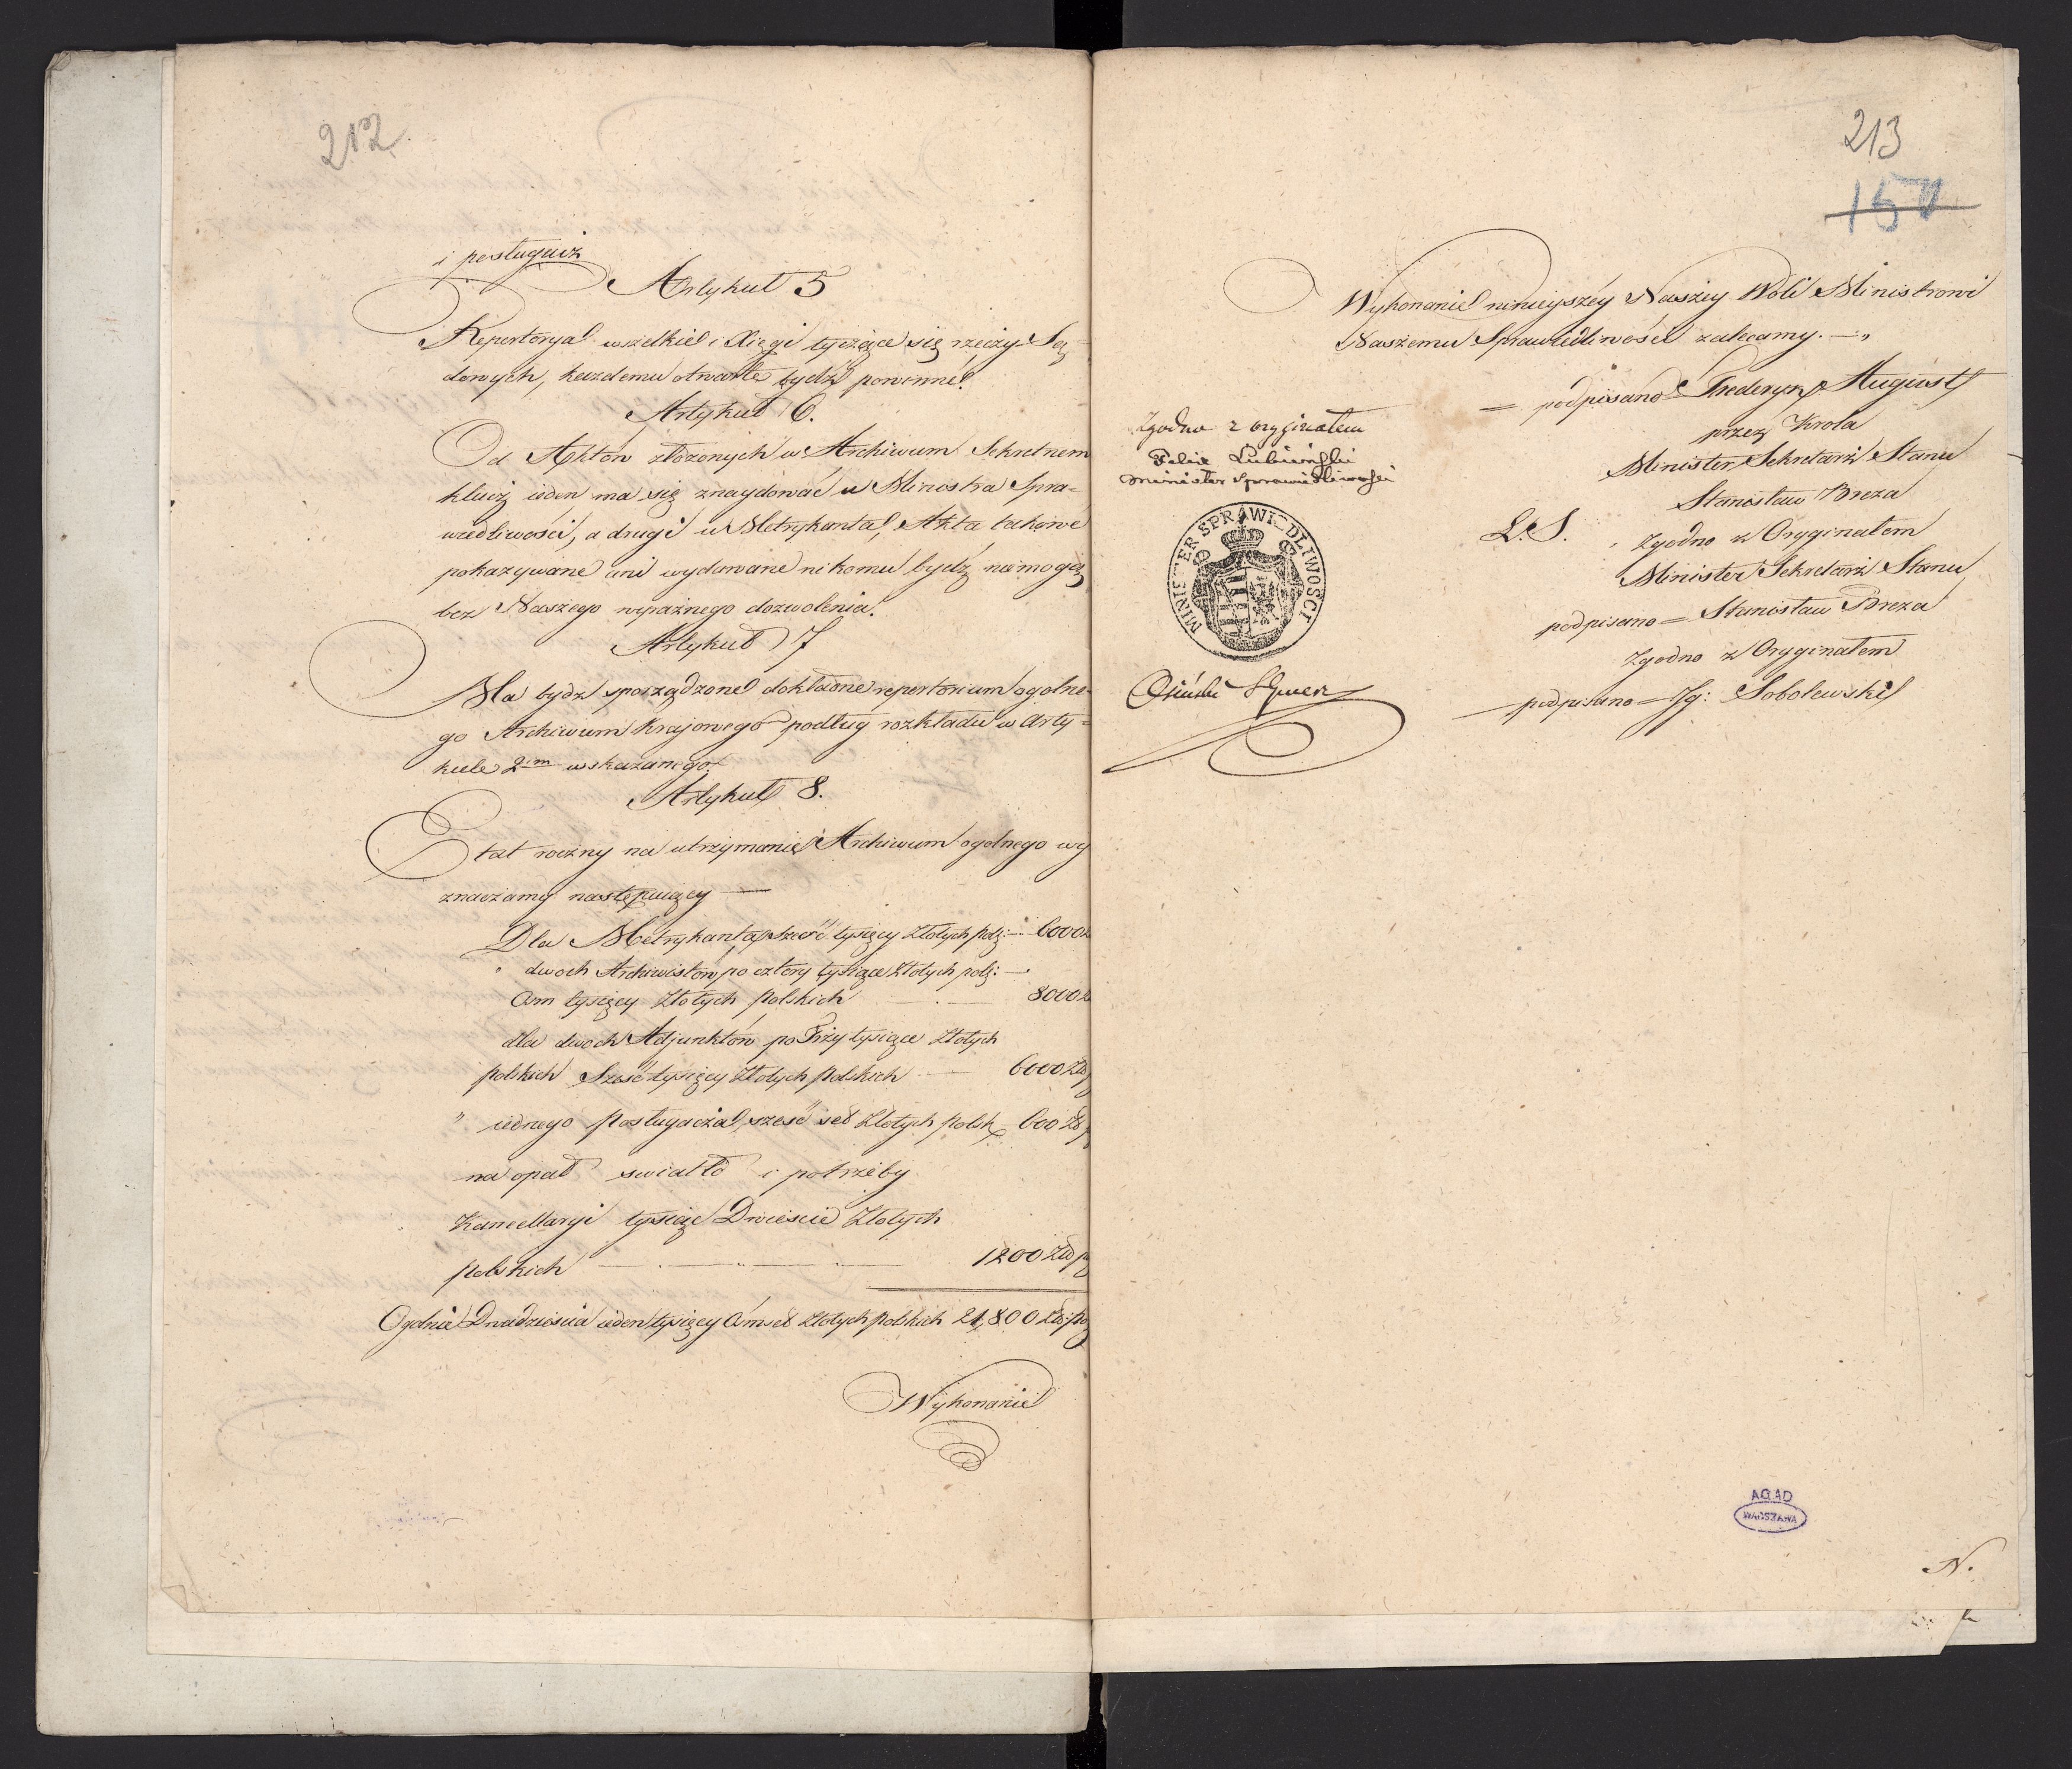 212
i posługacz
Artykuł 5
Repertorya wszelkie i Xięgi tyczące się rzeczy Są-
dowych, każdemu otwarte bydź powinne.
Artykuł 6.
Od Aktów złożonych w Archiwum Sekretnem
klucz ieden ma się znaydować u Ministra Spra-
wiedliwości, a drugi u Metrykanta, Akta takowe
pokazywane ani wydawane nikomu bydź niemogą
bez Naszego wyraźnego dozwolenia.
Artykuł 7
Ma bydź sporządzone dokładne repertorium ogolne-
go Archiwum Krajowego podług rozkładu w Arty-
kule 2im wskazanego.
Artykuł 8.
Etat roczny na utrzymanie Archiwum ogolnego wy
znaczamy następuiący —
Dla Metrykanta sześć tysięcy Złotych pols: — 6000
" dwoch Archiwistów po cztery tysiące Złotych pols: —
Ośm tysięcy Złotych Polskich — 8000
dla dwoch Adjunktów po Trzy tysiące Złotych
polskich Sześć tysięcy Złotych Polskich — 6000 Zł
" iednego Posługacza sześć set Złotych Polsk 600 Zł
na opał swiatło i potrzeby
Kancellaryi tysiąc Dwieście Złotych
polskich — 1200 Zł p
Ogolnie Dwadzieścia ieden tysięcy Ośmset Złotych polskich 21,800 Zł: po
Wykonanie
213
150
Wykonanie ninieyszéy Naszéy Woli Ministrowi
Naszemu Sprawiedliwości zalecamy. —
= podpisano Frederyk August
przez Krola
Minister Sekretarz Stanu
Stanisław Breza
L.S. Zgodno z Oryginałem
Minister Sekretarz Stanu
podpisano = Stanisław Breza
Zgodno z Oryginałem
— podpisano = Ig: Sobolewski
Zgodno z oryginałem
Felix Lubieński
Minister Sprawiedliwości
MINISTER SPRAWIEDLIWOSCI
Osiński
AGAD
WARSZAWA
N.